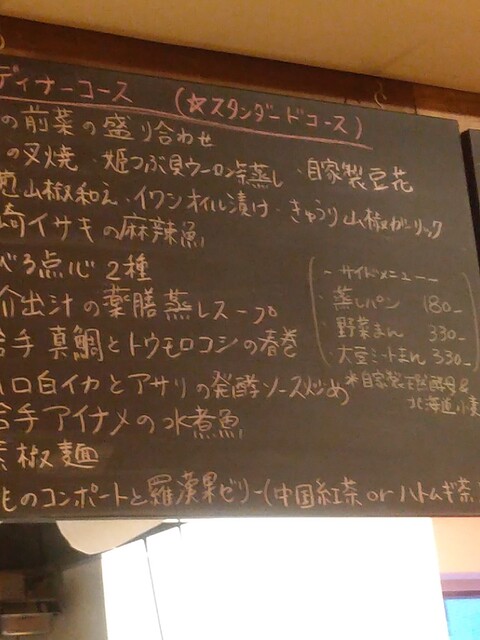 ディナーコース (☆スタンダードコース)
の前菜の盛り合わせ
の叉焼・姫つぶ貝ウーロン茶蒸し・自家製豆花
山椒和え・イワシオイル漬け・きゅうり山椒ガーリック
崎イサキの麻辣魚
べる点心2種
介出汁の薬膳蒸しスープ
岩手 真鯛とトウモロコシの春巻
口白イカとアサリの発酵ソース炒め
岩手アイナメの水煮魚
椒麺
のコンポートと羅漢果ゼリー(中国紅茶 or ハトムギ茶
〜サイドメニュー〜
・蒸しパン 180-
・野菜まん 330-
・大豆ミートまん 330-
*自家製天然酵母&
北海道小麦